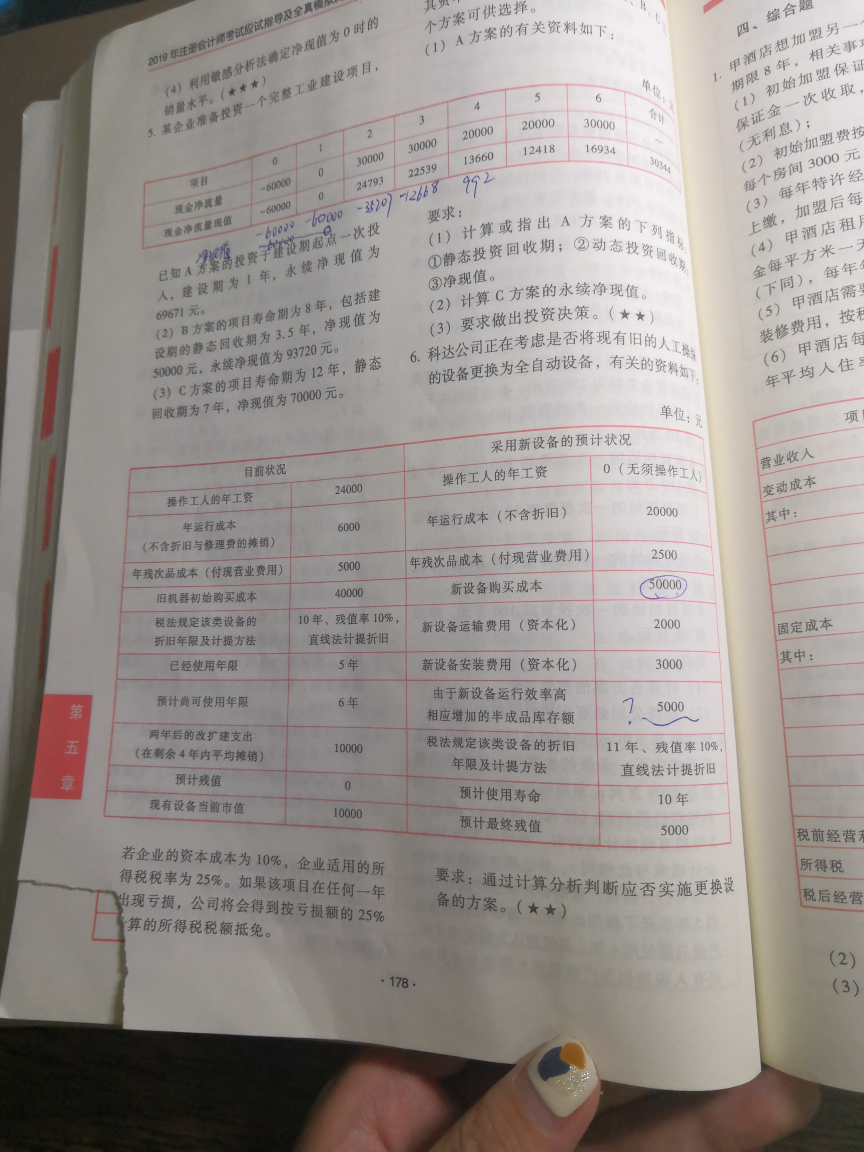 2019年注册会计师考试应试指导及全真模拟
(4)利用敏感分析法确定净现值为0时的
销量水平。(★★★)
5. 某企业准备投资一个完整工业建设项目,
个方案可供选择。
(1)A方案的有关资料如下:
单位:元
项目 0 1 2 3 4 5 6 合计
现金净流量 -60000 0 30000 30000 20000 20000 30000 —
现金净流量现值 -60000 0 24793 22539 13660 12418 16934 30344
-60000 -60000 -35207 -12668 992
已知A方案的投资于建设期起点一次投
入,建设期为1年,永续净现值为
69671元。
(2)B方案的项目寿命期为8年,包括建
设期的静态回收期为3.5年,净现值为
50000元,永续净现值为93720元。
(3)C方案的项目寿命期为12年,静态
回收期为7年,净现值为70000元。
要求:
(1)计算或指出A方案的下列指标:
①静态投资回收期;②动态投资回收期;
③净现值。
(2)计算C方案的永续净现值。
(3)要求做出投资决策。(★★)
6. 科达公司正在考虑是否将现有旧的人工操作
的设备更换为全自动设备,有关的资料如下:
单位:元
目前状况 采用新设备的预计状况
操作工人的年工资 24000 操作工人的年工资 0(无须操作工人)
年运行成本
(不含折旧与修理费的摊销) 6000 年运行成本(不含折旧) 20000
年残次品成本(付现营业费用) 5000 年残次品成本(付现营业费用) 2500
旧机器初始购买成本 40000 新设备购买成本 50000
税法规定该类设备的
折旧年限及计提方法 10年、残值率10%,
直线法计提折旧 新设备运输费用(资本化) 2000
已经使用年限 5年 新设备安装费用(资本化) 3000
预计尚可使用年限 6年 由于新设备运行效率高
相应增加的半成品库存额 ? 5000
两年后的改扩建支出
(在剩余4年内平均摊销) 10000 税法规定该类设备的折旧
年限及计提方法 11年、残值率10%,
直线法计提折旧
预计残值 0 预计使用寿命 10年
现有设备当前市值 10000 预计最终残值 5000
若企业的资本成本为10%,企业适用的所
得税税率为25%。如果该项目在任何一年
出现亏损,公司将会得到按亏损额的25%
计算的所得税税额抵免。
要求:通过计算分析判断应否实施更换设
备的方案。(★★)
第五章
·178·
四、综合题
1. 甲酒店想加盟另一
期限8年,相关事
(1)初始加盟保证
保证金一次收取,
(无利息);
(2)初始加盟费按
每个房间3000元
(3)每年特许经
上缴,加盟后每
(4)甲酒店租用
金每平方米一天
(下同),每年年
(5)甲酒店需要
装修费用,按税
(6)甲酒店每
年平均入住率
项
营业收入
变动成本
其中:
固定成本
其中:
税前经营利
所得税
税后经营
(2)
(3)